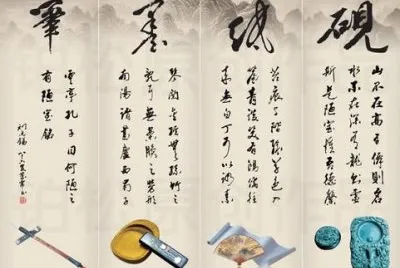 硯
山不在高有仙則名
水不在深有龍則靈
斯是陋室惟吾德馨
紙
苔痕上階綠草色入
簾青談笑有鴻儒往
來無白丁可以調素
墨
琴閱金經無絲竹之
亂耳無案牘之勞形
南陽諸葛廬西蜀子
筆
雲亭孔子曰何陋之
有陋室銘
劉禹錫